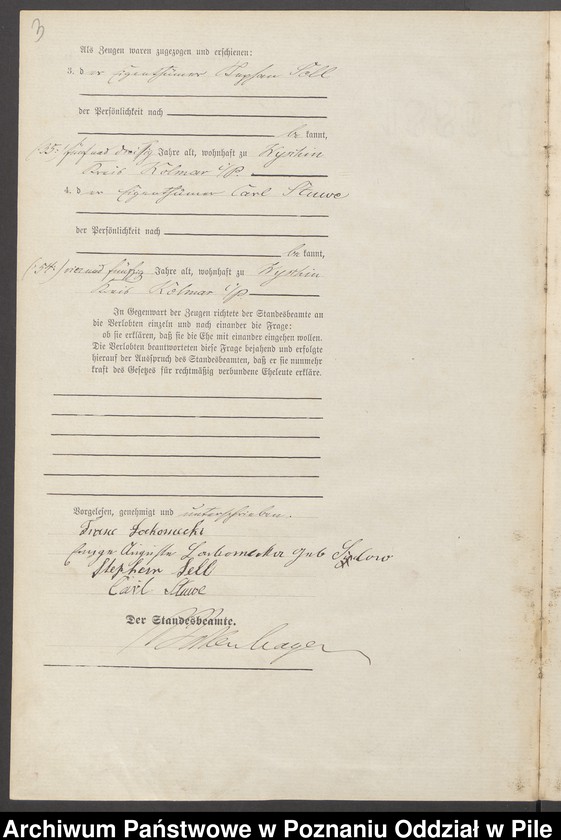 3
Als Zeugen waren zugezogen und erschienen:
3. der Eigenthümer Stephan Söll
der Persönlichkeit nach
be kannt,
(35.) fünf und dreißig Jahre alt, wohnhaft zu Kyschin
Kreis Kolmar i/P.
4. der Eigenthümer Carl Stuwe
der Persönlichkeit nach
be kannt,
(54.) vier und fünfzig Jahre alt, wohnhaft zu Kyschin
Kreis Kolmar i/P.
In Gegenwart der Zeugen richtete der Standesbeamte an
die Verlobten einzeln und nach einander die Frage:
ob sie erklären, daß sie die Ehe mit einander eingehen wollen.
Die Verlobten beantworteten diese Frage bejahend und erfolgte
hierauf der Ausspruch des Standesbeamten, daß er sie nunmehr
kraft des Gesetzes für rechtmäßig verbundene Eheleute erkläre.
Vorgelesen, genehmigt und unterschrieben.
Auguste geb
Stephan Sell
Carl Stuwe
Der Standesbeamte.
Archiwum Państwowe w Poznaniu Oddział w Pile